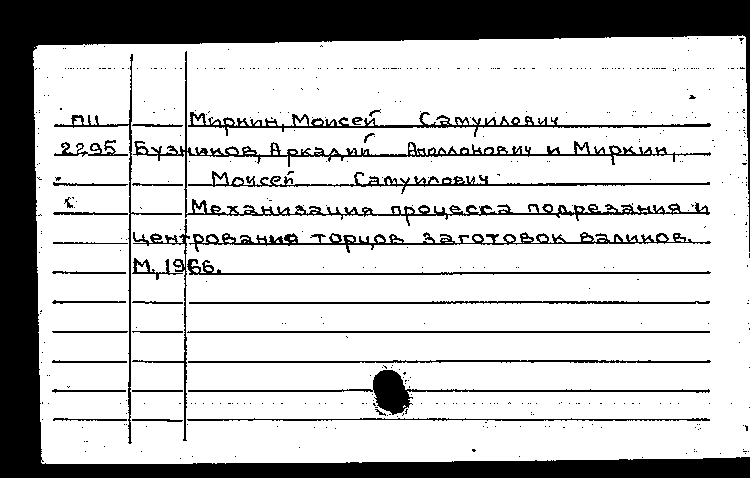 П11 Миркин, Моисей Самуилович
2295 Бузников, Аркадий Аполлонович и Миркин,
Моисей Самуилович
Механизация процесса подрезания и
центрования торцов заготовок валиков.
М., 1966.